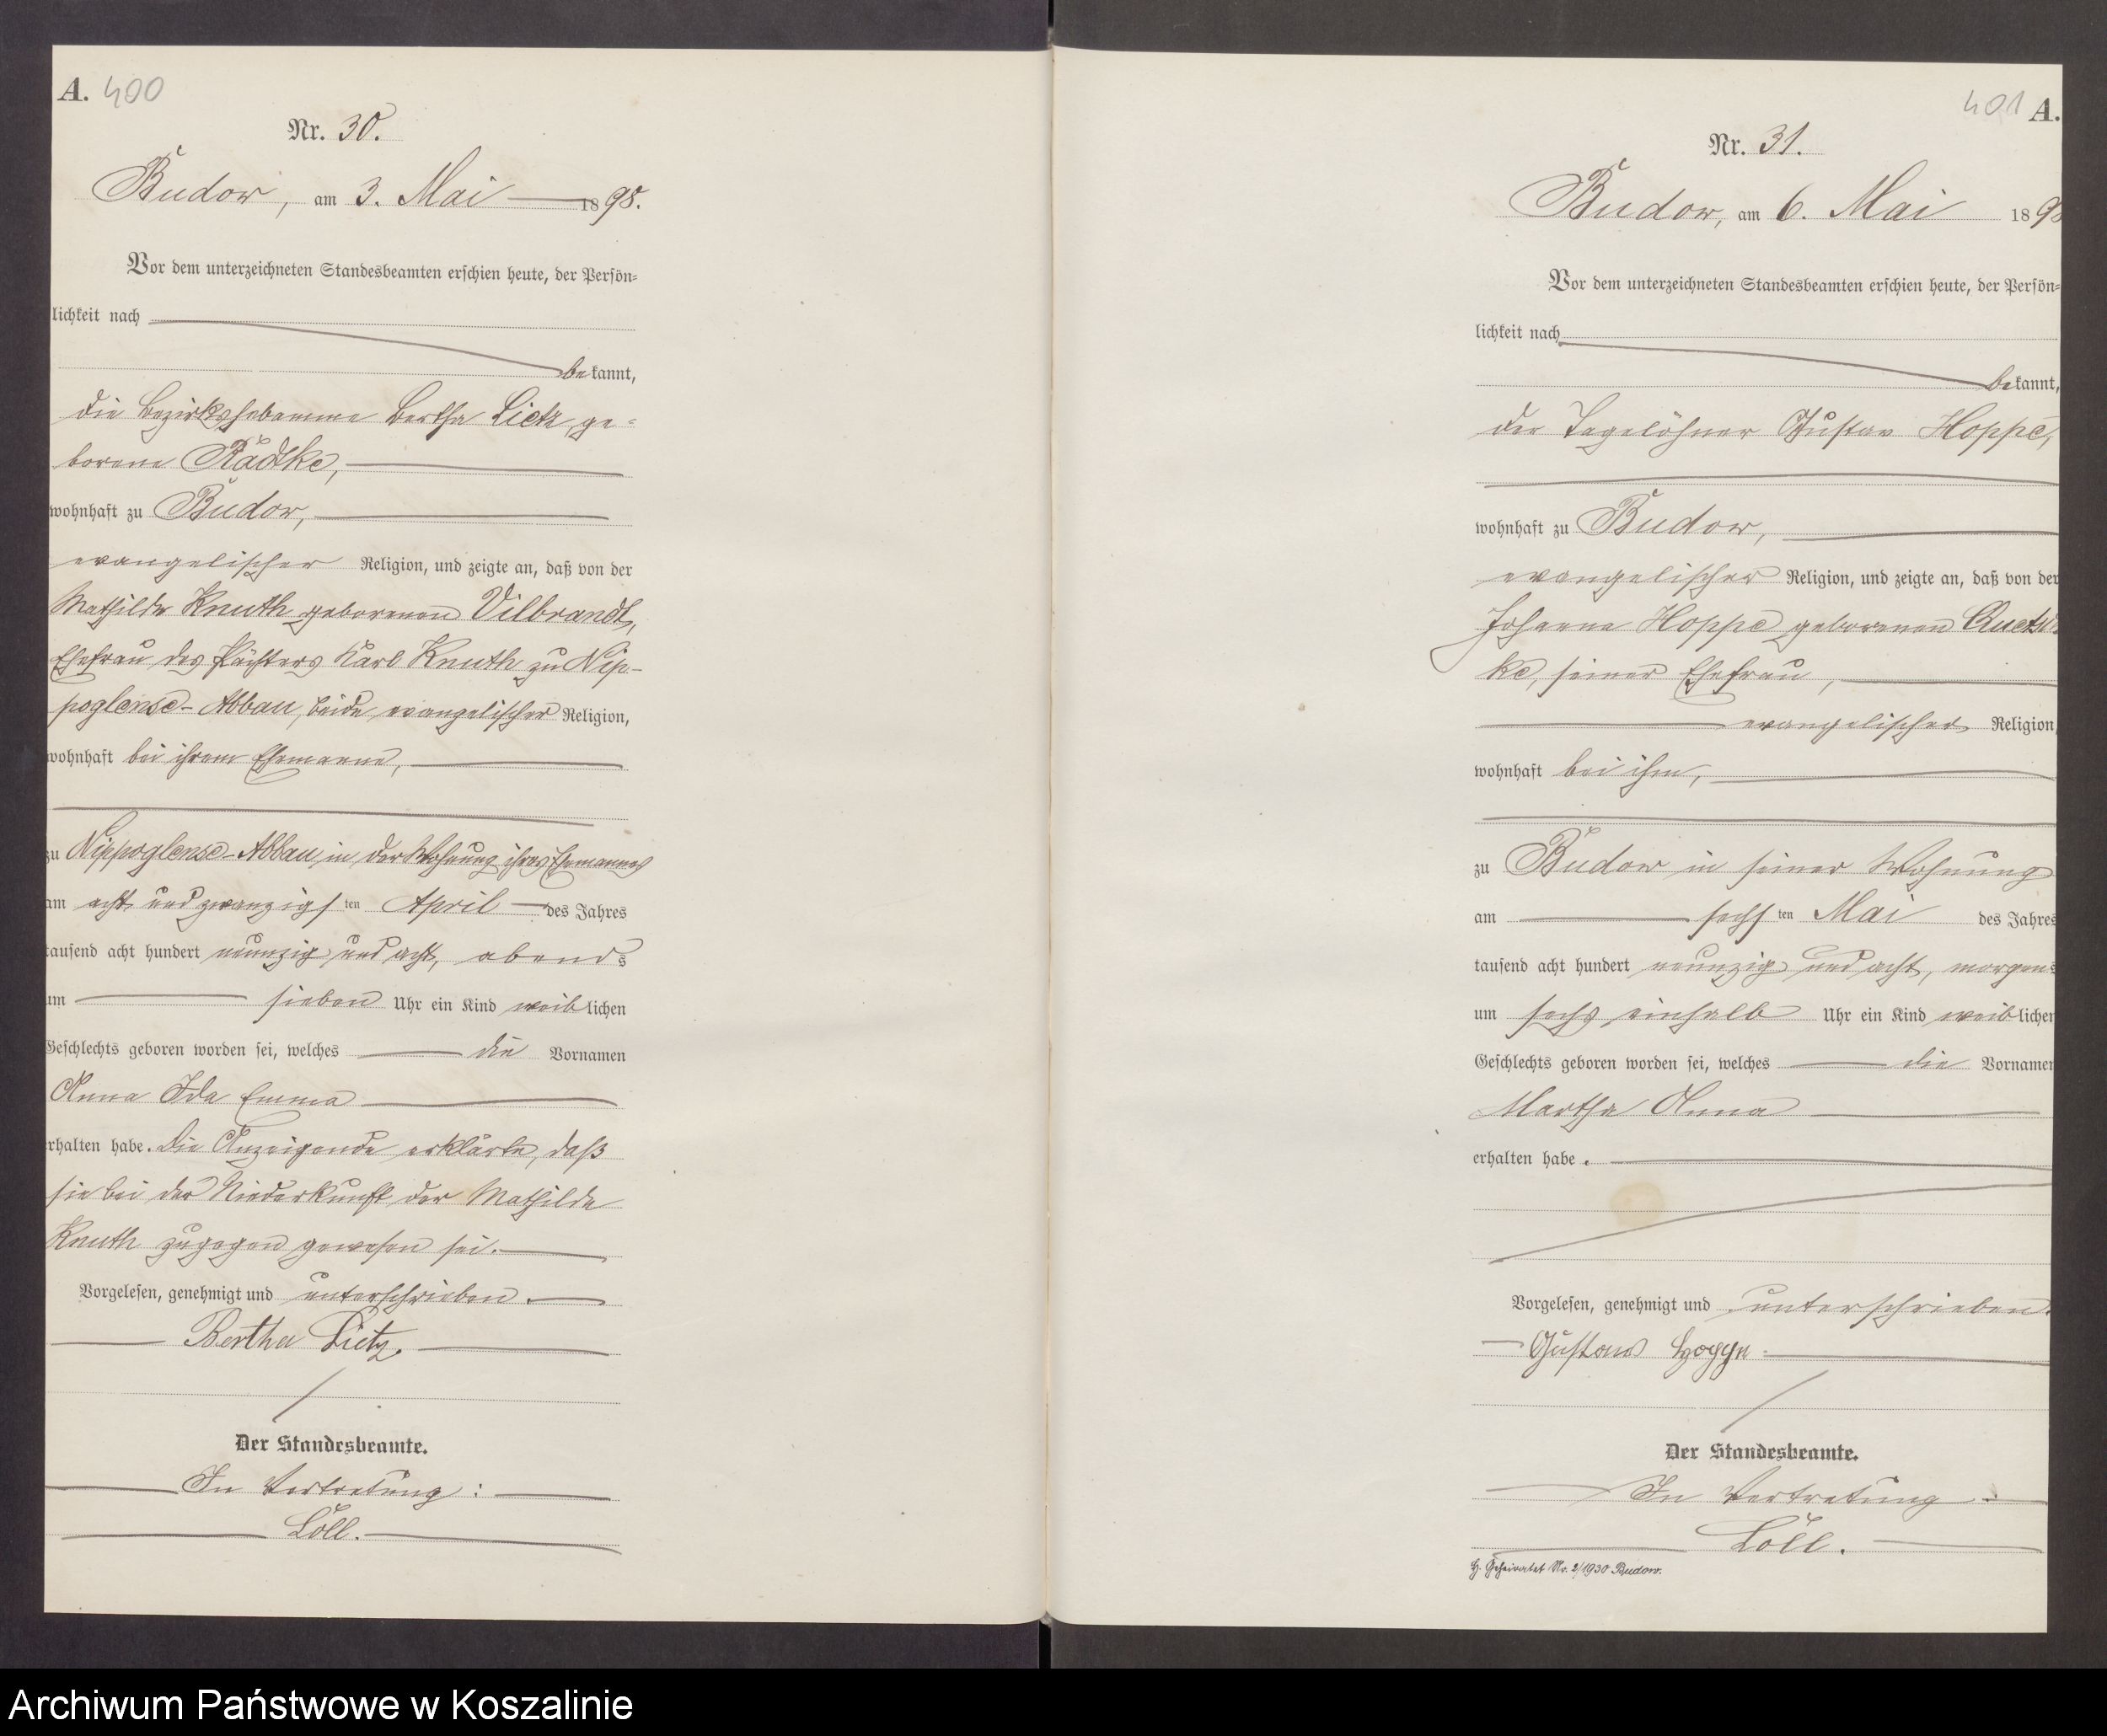 A. 400
Nr. 30.
Budow, am 3. Mai 1898.
Vor dem unterzeichneten Standesbeamten erschien heute, der Persön-
lichkeit nach
bekannt,
die Bezirkshebamme Bertha Lietz, ge-
borene Radtke,
wohnhaft zu Budow,
evangelischer Religion, und zeigte an, daß von der
Mathilde Knuth geborenen Vilbrandt,
Ehefrau des Pächters Karl Knuth zu Nip-
poglense-Abbau, beide evangelischer Religion,
wohnhaft bei ihrem Ehemanne,
zu Nippoglense-Abbau in der Wohnung ihres Ehemannes
am acht und zwanzigsten April des Jahres
tausend acht hundert neunzig und acht, abends
um sieben Uhr ein Kind weiblichen
Geschlechts geboren worden sei, welches die Vornamen
Anna Ida Emma
erhalten habe. Die Anzeigende erklärte, daß
sie bei der Niederkunft der Mathilde
Knuth zugegen gewesen sei.
Vorgelesen, genehmigt und unterschrieben.
Bertha Lietz.
Der Standesbeamte.
In Vertretung:
Löll.
401 A.
Nr. 31.
Budow, am 6. Mai 1898
Vor dem unterzeichneten Standesbeamten erschien heute, der Persön-
lichkeit nach
bekannt,
der Tagelöhner Gustav Hoppe,
wohnhaft zu Budow,
evangelischer Religion, und zeigte an, daß von der
Johanna Hoppe geborenen Quetsch-
ke, seiner Ehefrau,
evangelischer Religion,
wohnhaft bei ihm,
zu Budow in seiner Wohnung
am sechsten Mai des Jahres
tausend acht hundert neunzig und acht, morgens
um sechs einhalb Uhr ein Kind weiblichen
Geschlechts geboren worden sei, welches die Vornamen
Martha Anna
erhalten habe.
Vorgelesen, genehmigt und unterschrieben.
Gustav Hoppe.
Der Standesbeamte.
In Vertretung:
Löll.
H. Geheiratet Nr. 2/1930 Budow.
Archiwum Państwowe w Koszalinie